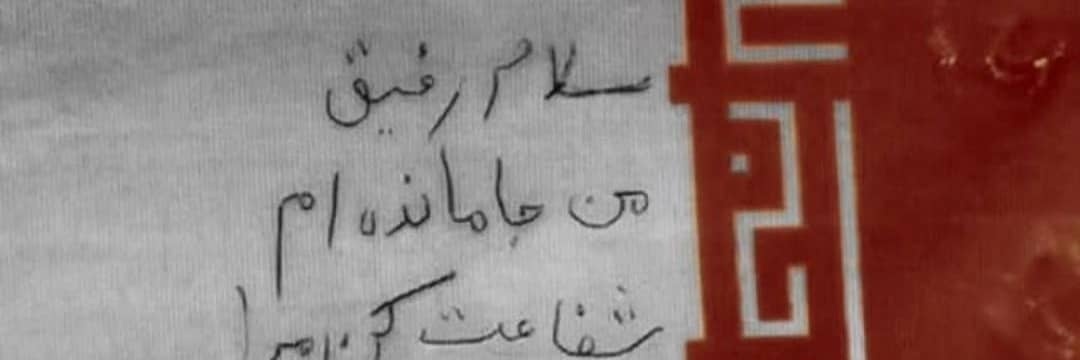 سلام رفیق
من جامانده ام
شفاعت کن مرا